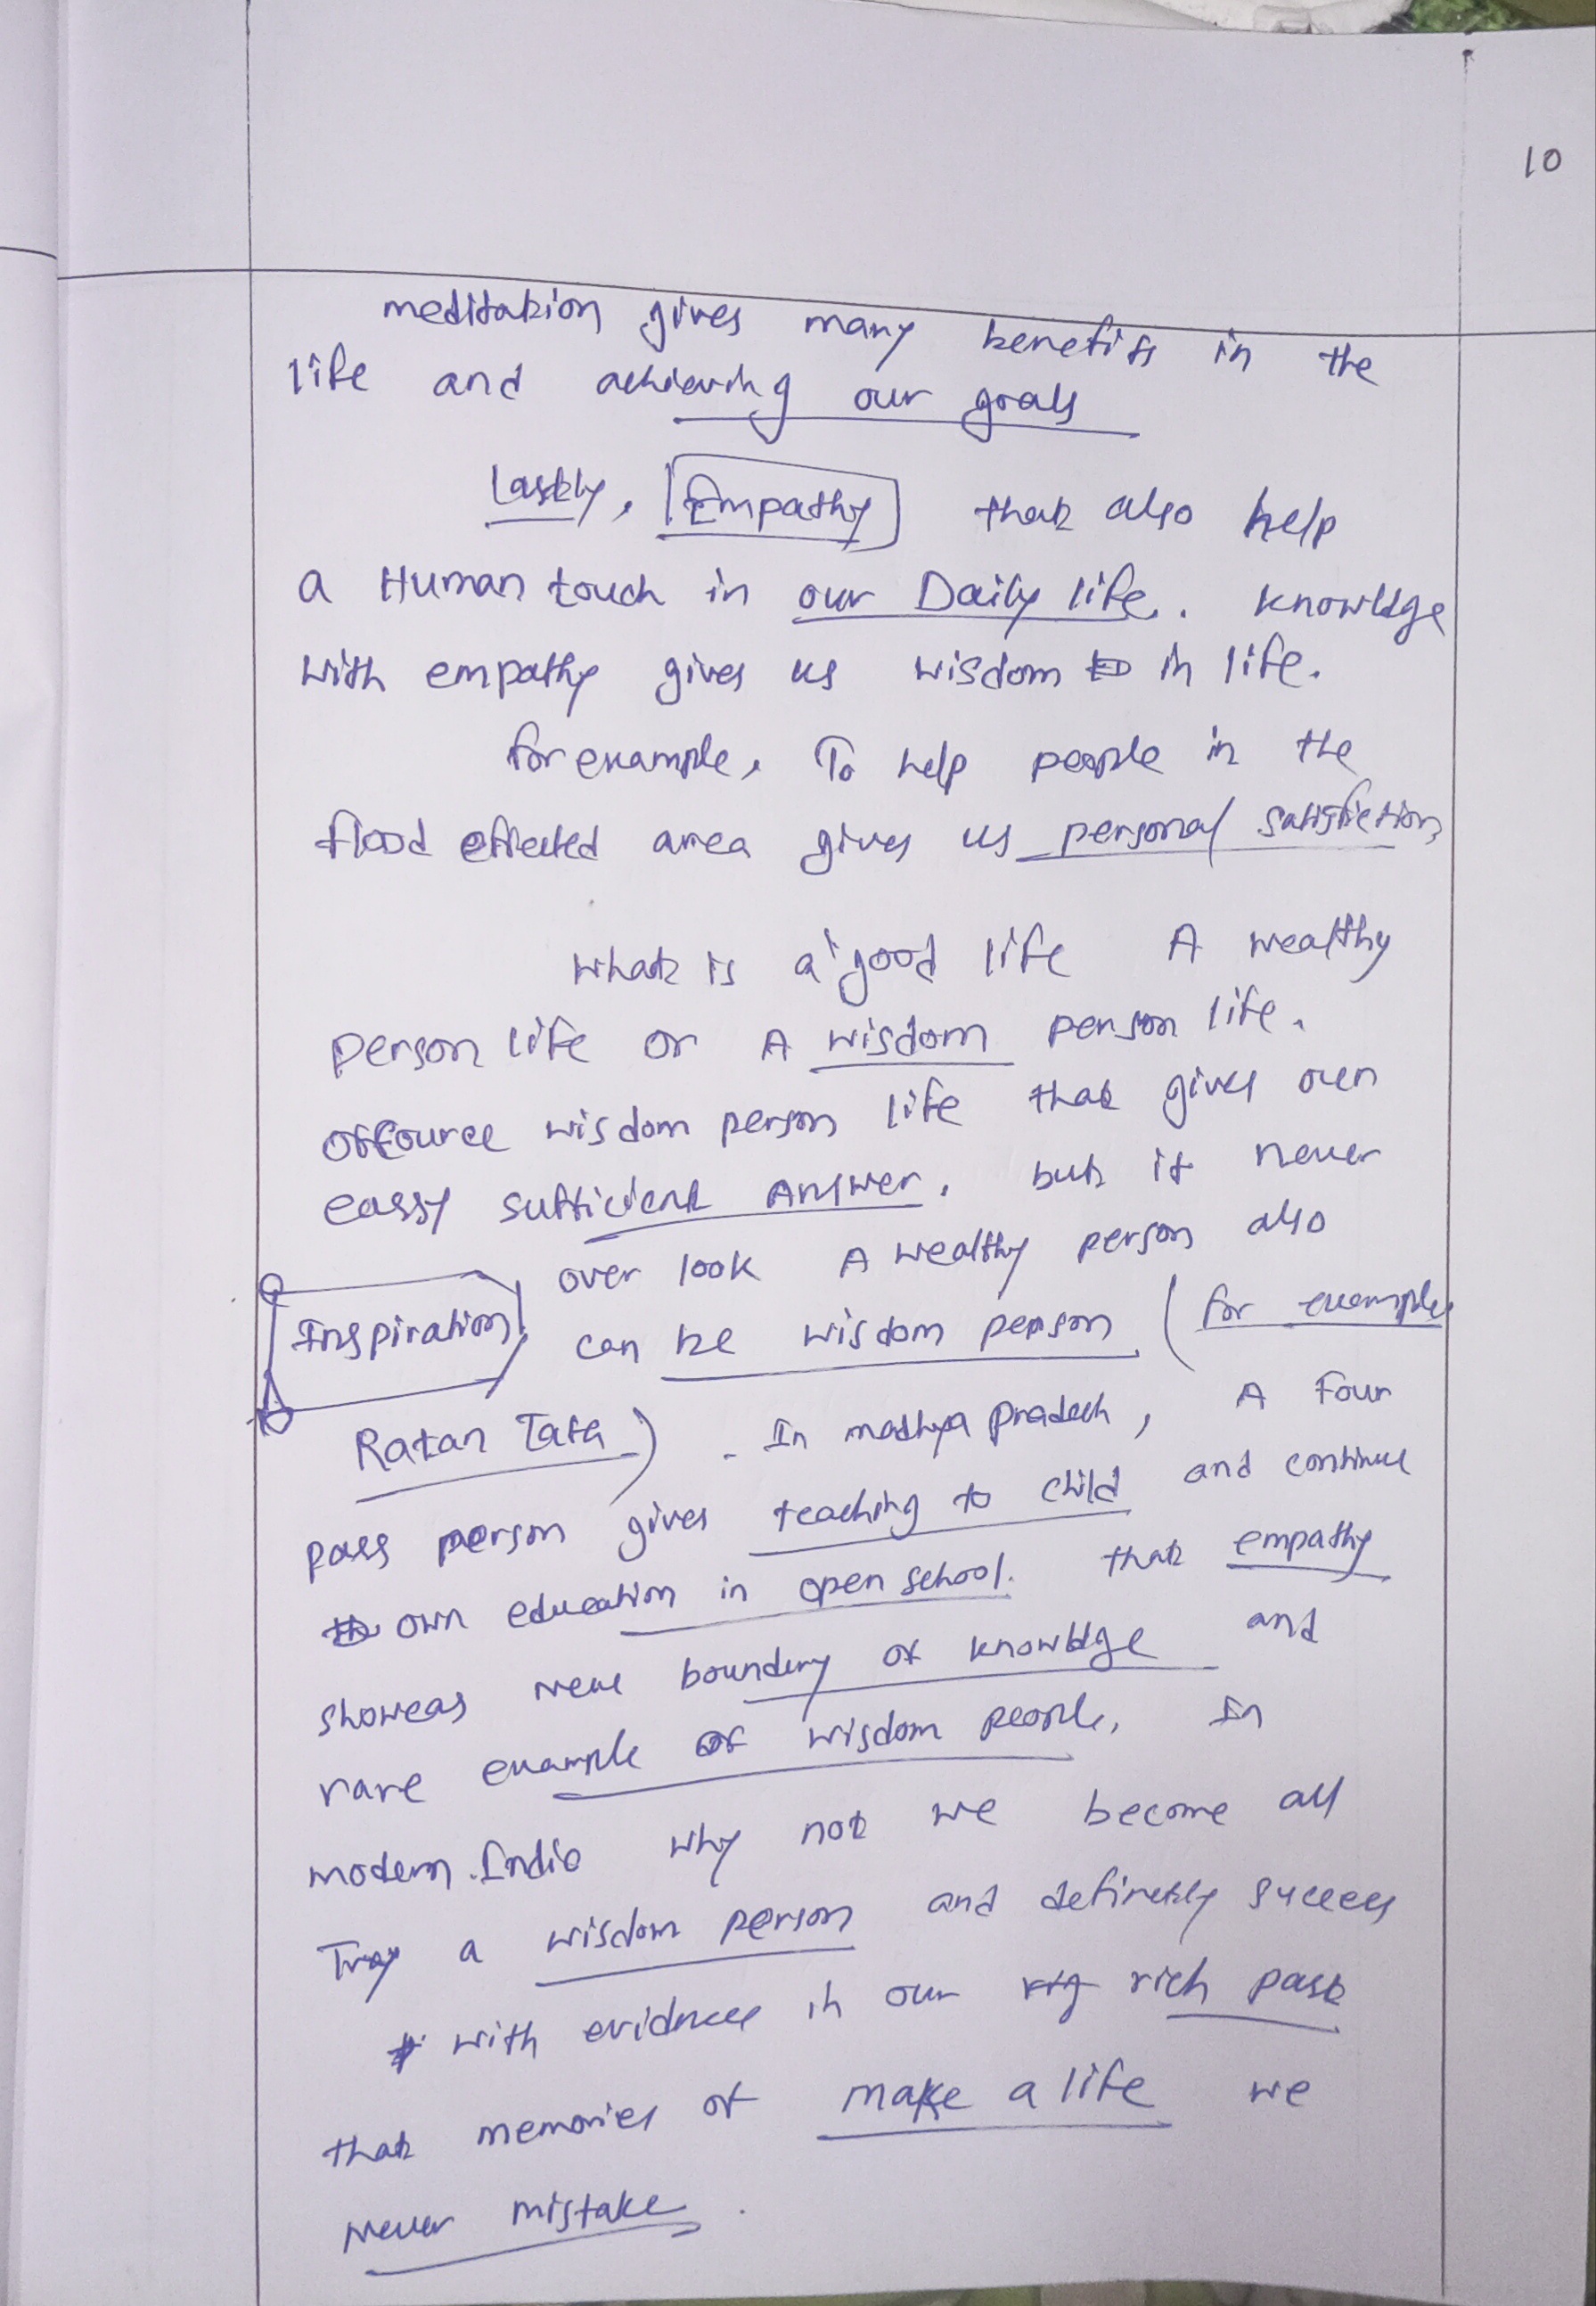 10
meditation gives many benefits in the
life and achieving our goals
Lastly, Empathy that also help
a Human touch in our Daily life. knowldge
with empathy gives us wisdom in life.
for example, To help people in the
flood effected area gives us personal satisfiction
what is a good life A wealthy
person life or A wisdom person life.
offource wisdom person life that gives own
eassy sufficient Answer. but it never
over look A wealthy person also
Inspiration can be wisdom person (for example
Ratan Tata). In madhya pradesh, A Four
pass person gives teaching to child and continue
own education in open school. that empathy
showeas new boundry of knowldge and
rare example of wisdom people. In
modern India why not we become all
Tray a wisdom person and definetly success
with evidnce in our rich past
that memories of make a life we
never mistake.